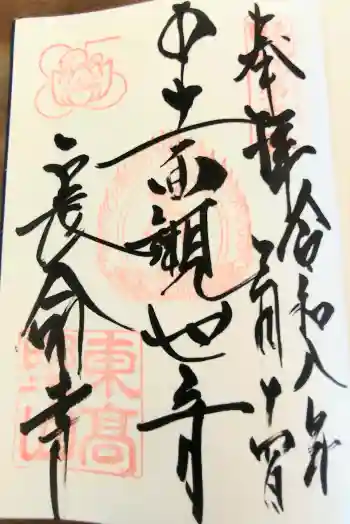 奉拝
令和八年
月十四日
十一面觀世音
長命寺
東高野山